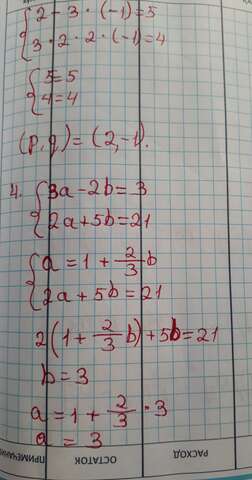 2 - 3 · (-1) = 5
3 · 2 · 2 · (-1) = 4
5 = 5
4 = 4
(p, q) = (2, -1).
4. { 3a - 2b = 3
2a + 5b = 21
{ a = 1 + 2/3 b
2a + 5b = 21
2(1 + 2/3 b) + 5b = 21
b = 3
a = 1 + 2/3 · 3
a = 3
ПРИМЕЧАНИ
ОСТАТОК
РАСХОД